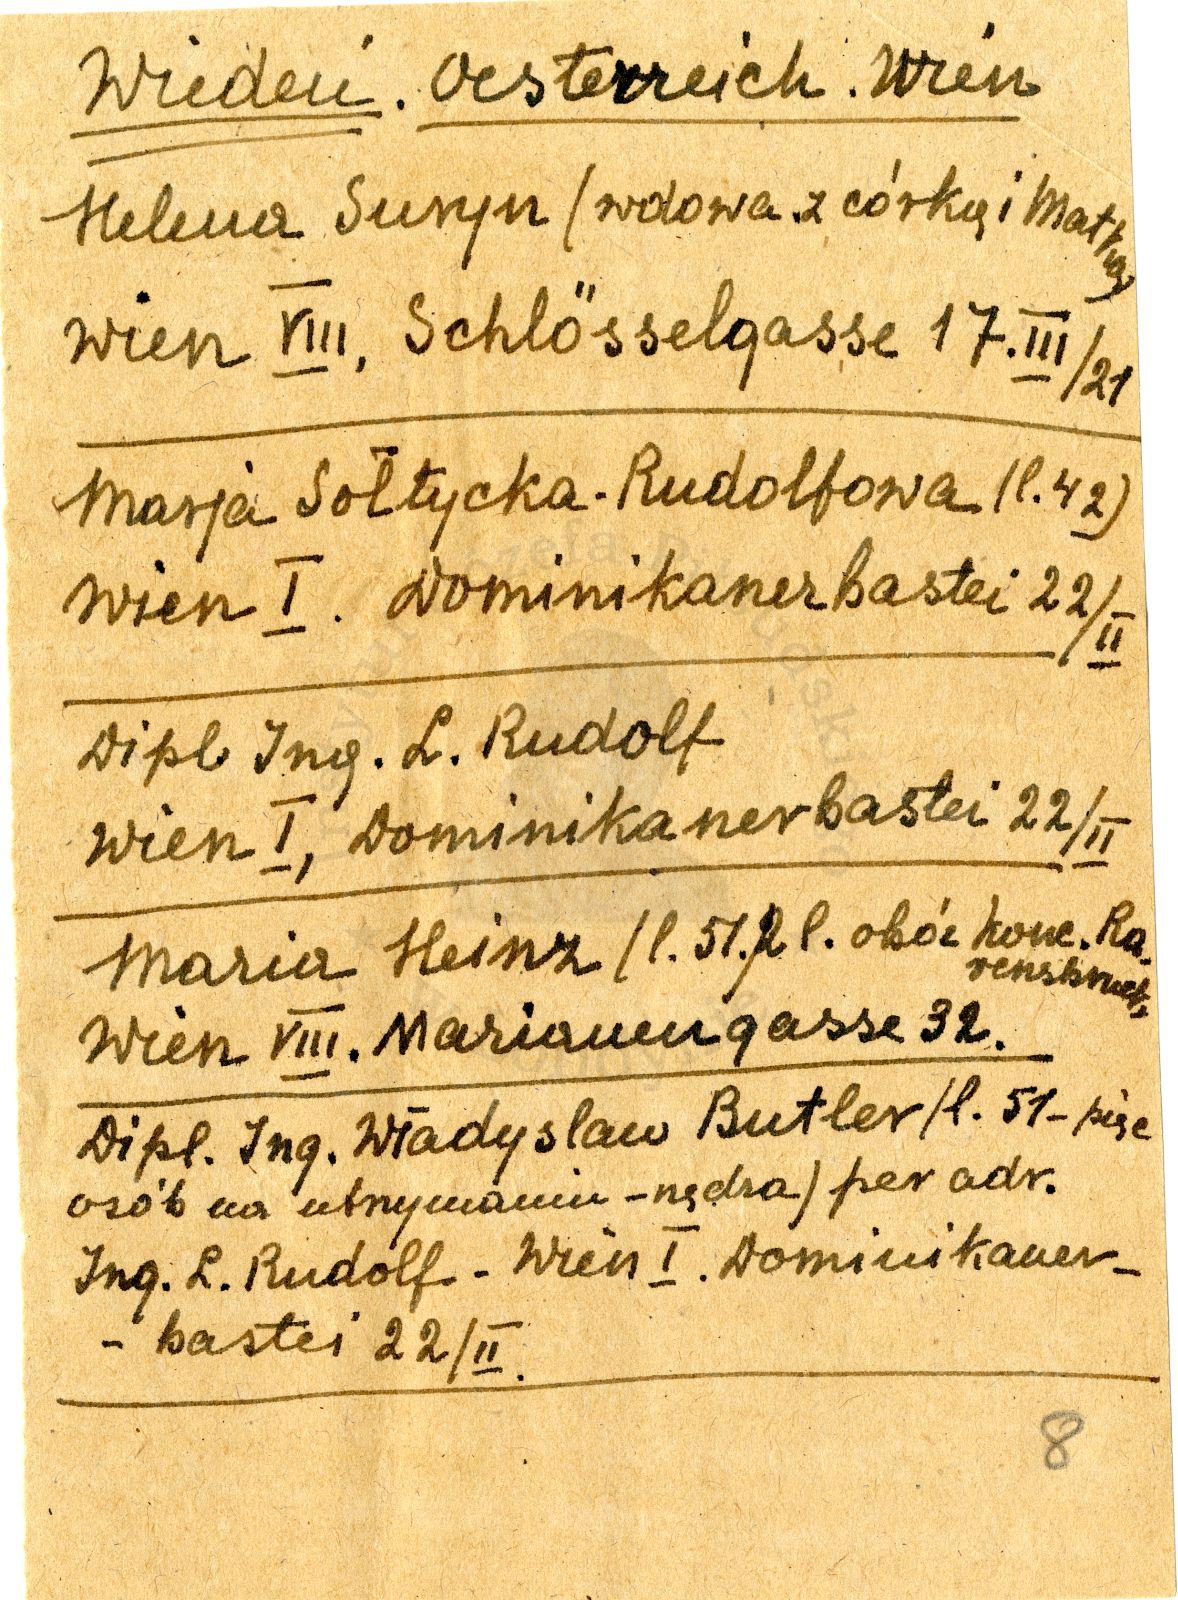 Wiedeń. Oesterreich. Wien
Helena Suryn (wdowa z córką i Matką)
Wien VIII, Schlösselgasse 17.III/21
Marja Sołtycka-Rudolfowa (l. 42)
Wien I. Dominikanerbastei 22/II
Dipl Ing. L. Rudolf
Wien I, Dominikanerbastei 22/II
Maria Heinz (l. 51. 2 l. obóz konc. Ra-
vensbrück
Wien VIII. Mariannengasse 32.
Dipl. Ing. Władysław Butler (l. 51 - pięc
osób na utrzymaniu - nędza) per adr.
Ing. L. Rudolf - Wien I. Dominikaner-
- bastei 22/II.
8